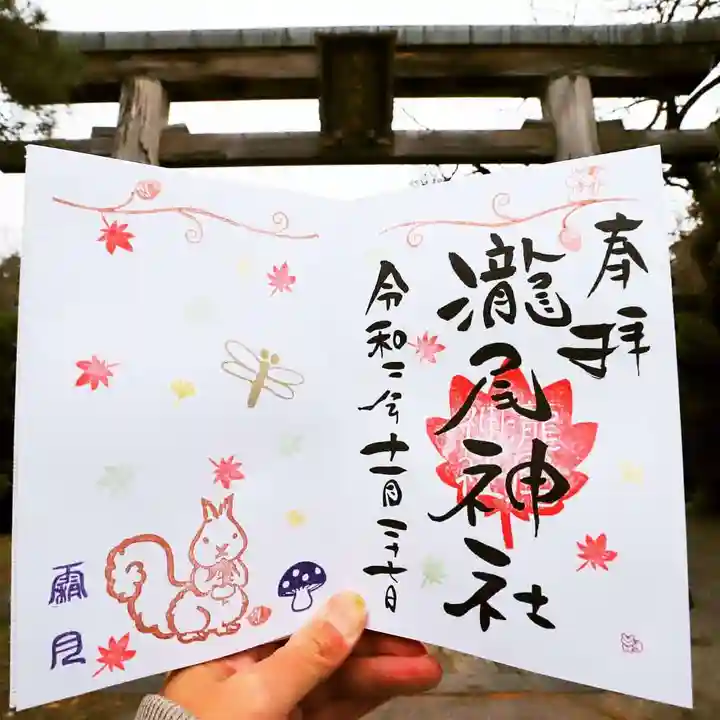 奉拝
瀧尾神社
令和二年十一月二十七日
霜月